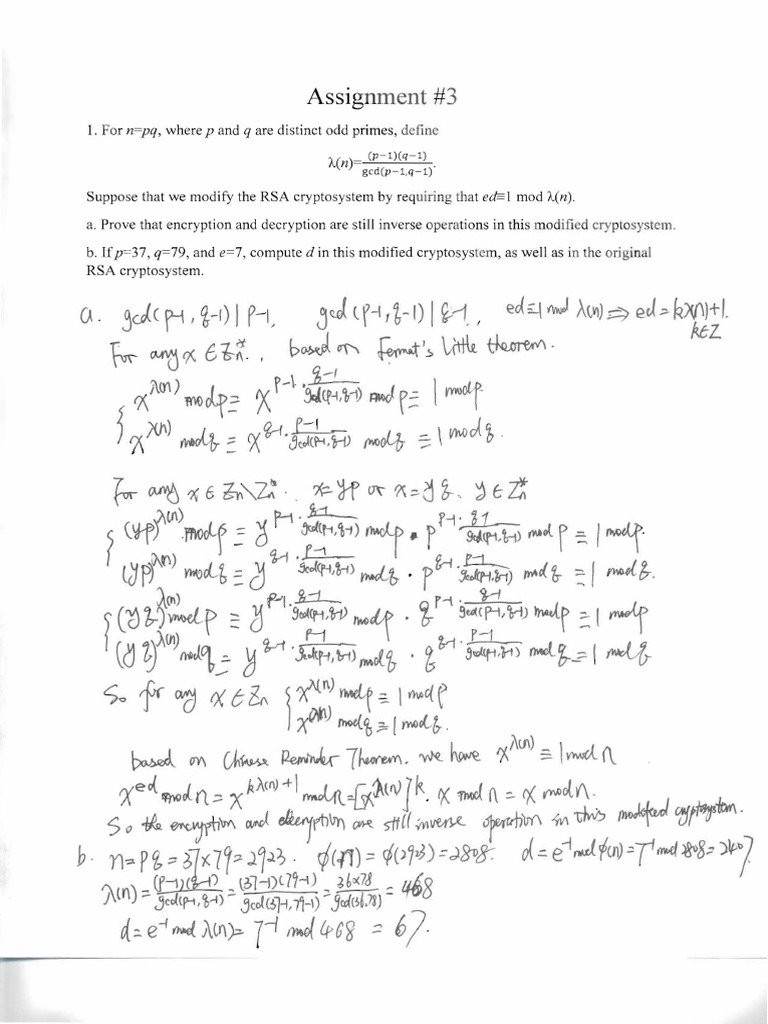 Assignment #3
1. For n=pq, where p and q are distinct odd primes, define
λ(n)=(p−1)(q−1)/gcd(p−1,q−1).
Suppose that we modify the RSA cryptosystem by requiring that ed≡1 mod λ(n).
a. Prove that encryption and decryption are still inverse operations in this modified cryptosystem.
b. If p=37, q=79, and e=7, compute d in this modified cryptosystem, as well as in the original
RSA cryptosystem.
a. gcd(p-1, q-1) | p-1, gcd(p-1, q-1) | q-1, ed≡1 mod λ(n) ⇒ ed = kλ(n)+1.
k∈Z
For any x ∈ Zn*, based on Fermat's Little theorem.
{ x^λ(n) mod p ≡ x^(p-1 · (q-1)/gcd(p-1,q-1)) mod p ≡ 1 mod p
x^λ(n) mod q ≡ x^(q-1 · (p-1)/gcd(p-1,q-1)) mod q ≡ 1 mod q.
For any x ∈ Zn\Zn*. x=yp or x=yq. y∈Zn*
{ (yp)^λ(n) mod p ≡ y^(p-1 · (q-1)/gcd(p-1,q-1)) mod p · p^(p-1 · (q-1)/gcd(p-1,q-1)) mod p ≡ 1 mod p.
(yp)^λ(n) mod q ≡ y^(q-1 · (p-1)/gcd(p-1,q-1)) mod q · p^(q-1 · (p-1)/gcd(p-1,q-1)) mod q ≡ 1 mod q.
{ (yq)^λ(n) mod p ≡ y^(p-1 · (q-1)/gcd(p-1,q-1)) mod p · q^(p-1 · (q-1)/gcd(p-1,q-1)) mod p ≡ 1 mod p
(yq)^λ(n) mod q = y^(q-1 · (p-1)/gcd(p-1,q-1)) mod q · q^(q-1 · (p-1)/gcd(p-1,q-1)) mod q = 1 mod q
So for any x ∈ Zn { x^λ(n) mod p ≡ 1 mod p
x^λ(n) mod q ≡ 1 mod q.
based on Chinese Reminder Theorem. we have x^λ(n) ≡ 1 mod n
x^ed mod n = x^(kλ(n)+1) mod n = [x^λ(n)]^k · x mod n = x mod n.
So the encryption and decryption are still inverse operation in this modified cryptosystem.
b. n=pq=37×79=2923. φ(n)=φ(2923)=2808. d=e^-1 mod φ(n)=7^-1 mod 2808=2407.
λ(n)=(p-1)(q-1)/gcd(p-1,q-1)=(37-1)(79-1)/gcd(37-1,79-1)=36×78/gcd(36,78)=468
d=e^-1 mod λ(n)=7^-1 mod 468 = 67.